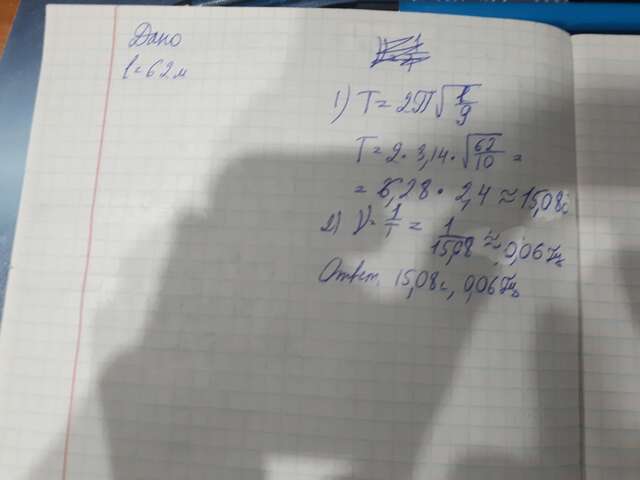 Дано
l = 62 м
1) T = 2П√l/g
T = 2 · 3,14 · √62/10 =
= 6,28 · 2,4 ≈ 15,08с
2) ν = 1/T = 1/15,08 ≈ 0,06Гц
Ответ. 15,08с, 0,06Гц